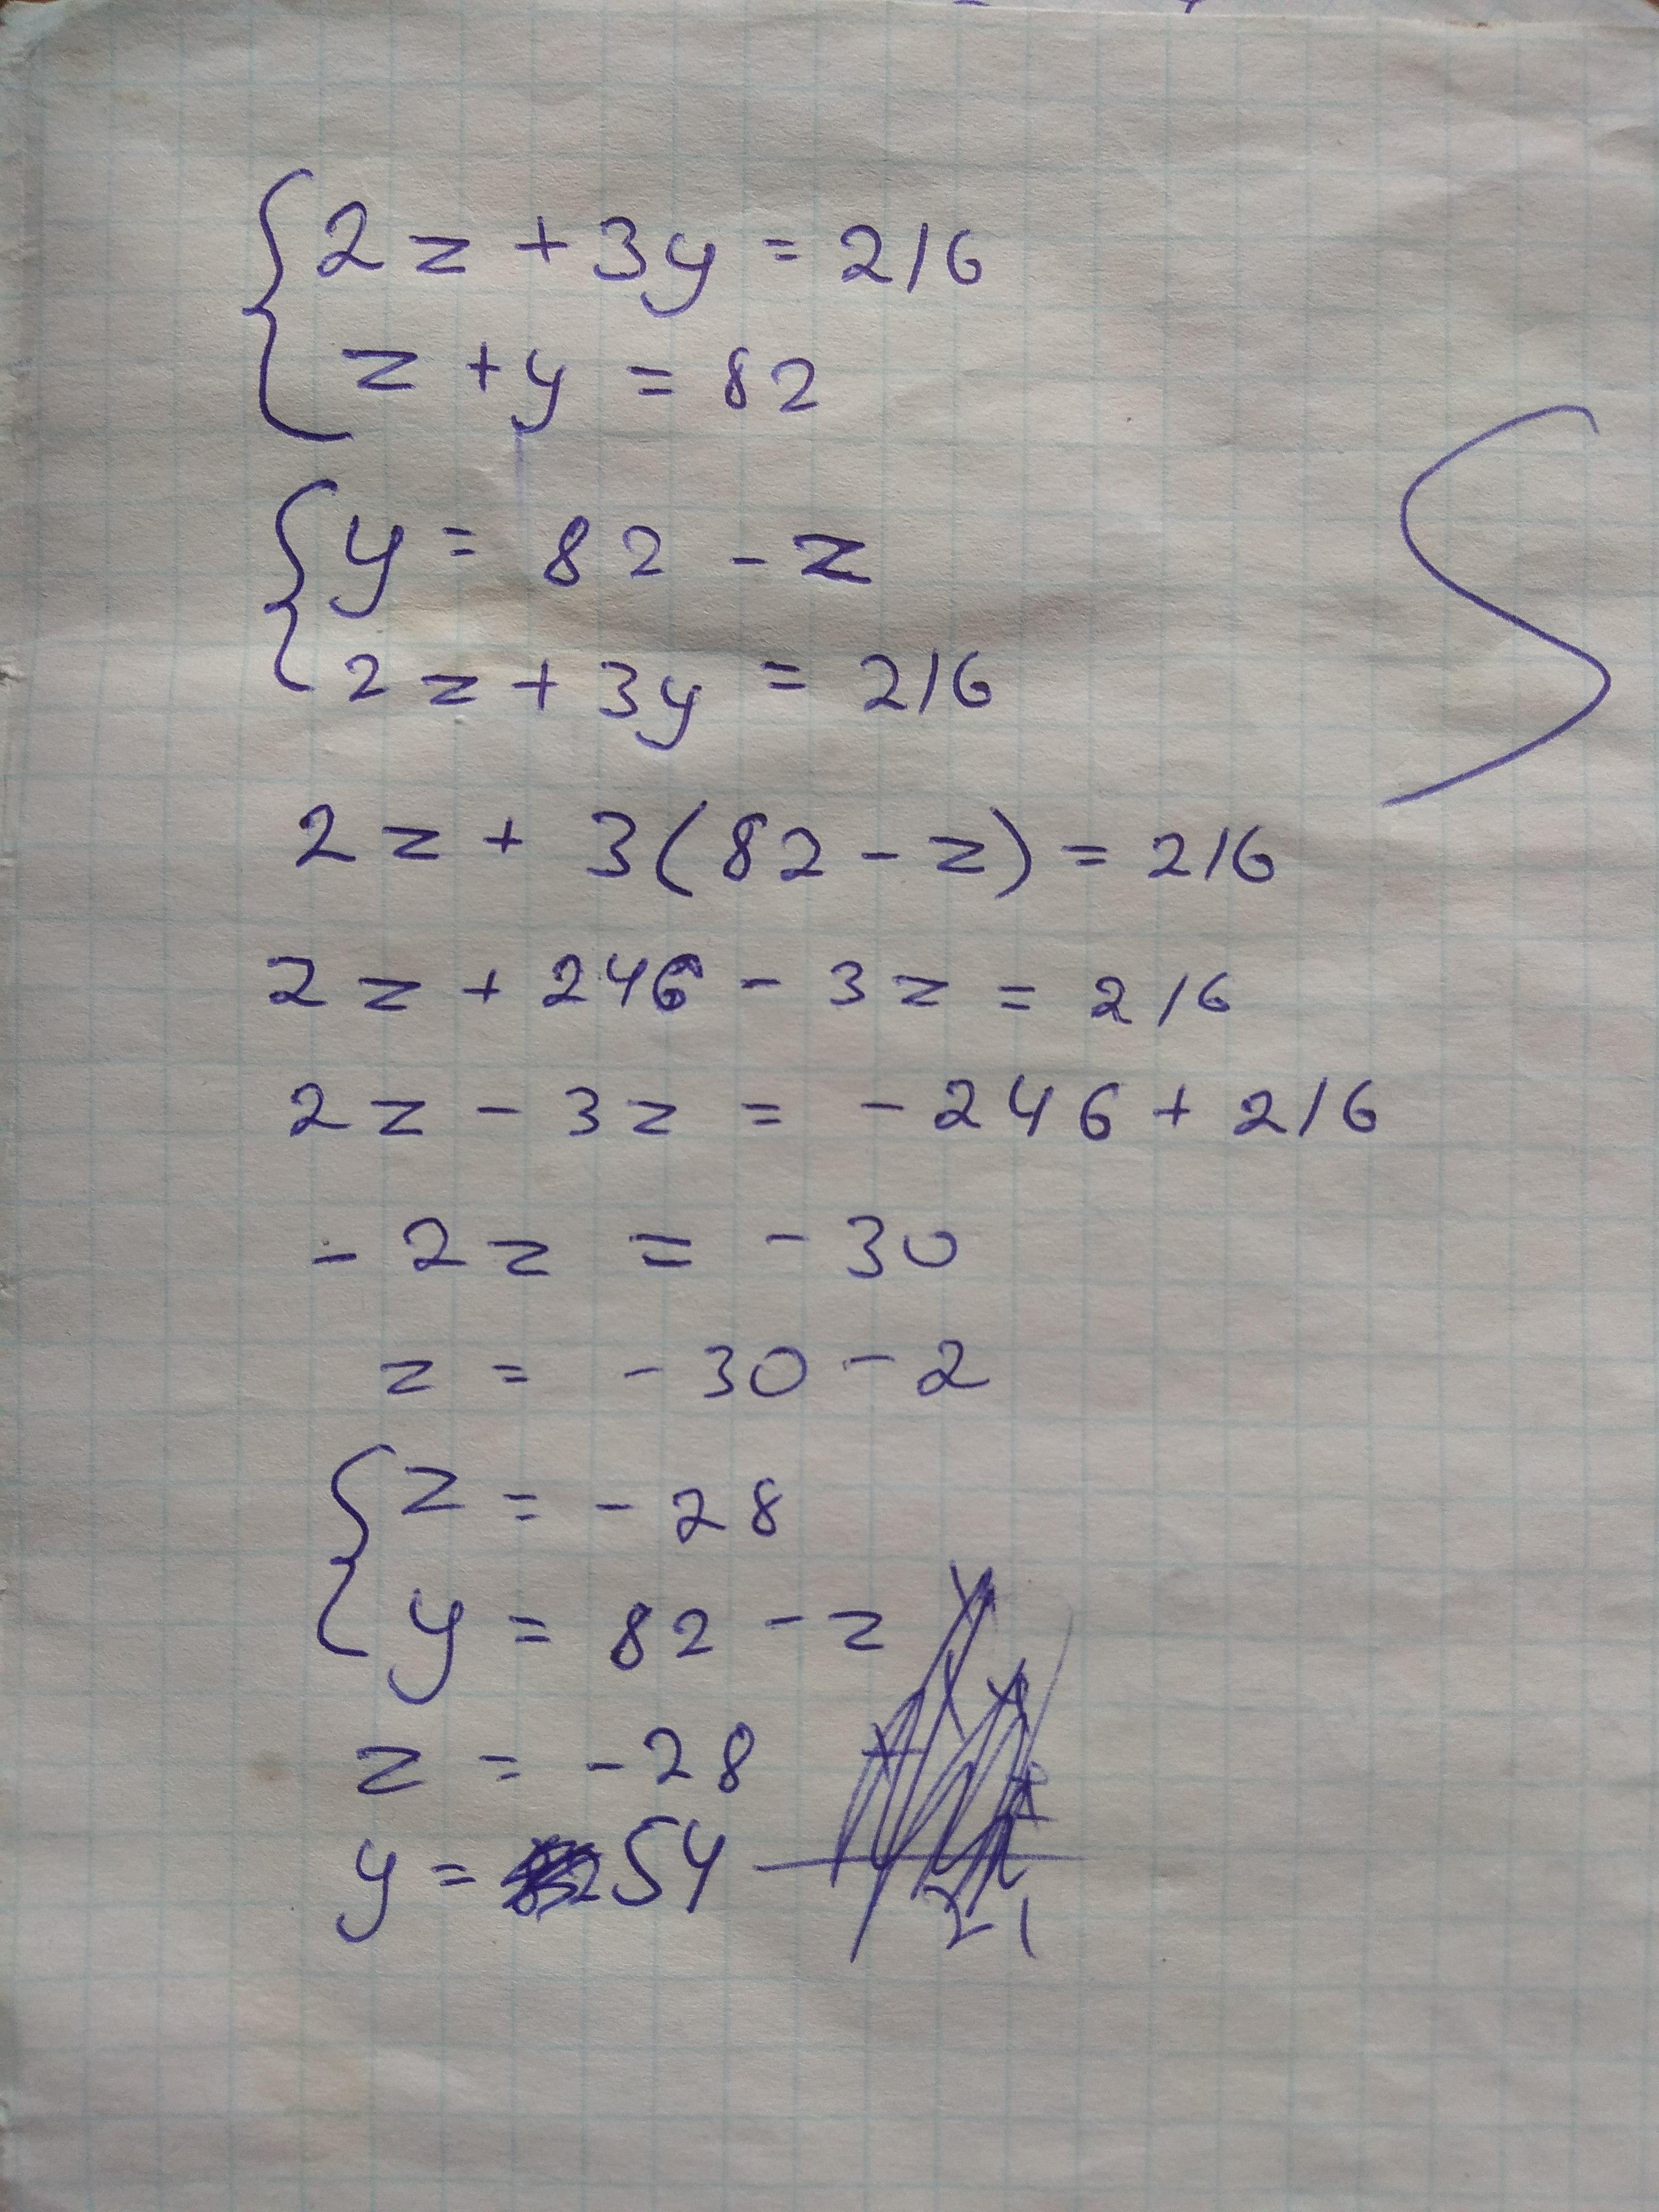 2z + 3y = 216
z + y = 82
y = 82 - z
2z + 3y = 216
2z + 3(82 - z) = 216
2z + 246 - 3z = 216
2z - 3z = - 246 + 216
- 2z = - 30
z = - 30 - 2
z = - 28
y = 82 - z
z = - 28
y = 54